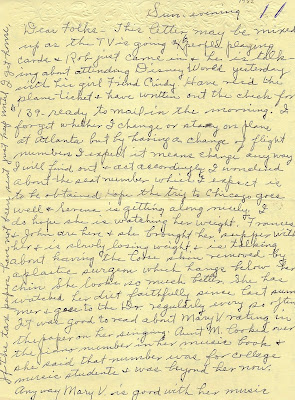 Sun. evening
Dear Folks - This letter may be mixed
up as the TV is going & people playing
cards & Rob just came in & he is talk-
ing about attending Disney World yesterday
with his girl friend Cindy. Have rec'd the
plane ticket & have written out the check for
139- ready to mail in the morning. I
forget whether I change or stay on plane
at Atlanta but by having a change of flight
numbers I expect it means change anyway
I will find out & act accordingly. I wondered
about the seat number which I expect is
to be obtained. Hope the trip to Chicago goes
well & is getting along nicely. I
do hope she is watching her weight. Frances
& John are here & she brought her paper with
her & is slowly losing weight & is talking
about having the loose skin removed by
a plastic surgeon which hangs below her
chin. She looks so much better. She has
watched her diet faithfully since last sum-
mer & goes to the her routinely every so often
It was good to read about Mary V rating in
the paper on her singing. Aunt M. looked over
the piano number in her music book &
she said that number was for college
music students & was beyond her now.
Anyway Mary V. is good with her music
If the tax papers have not been sent just keep until I get home